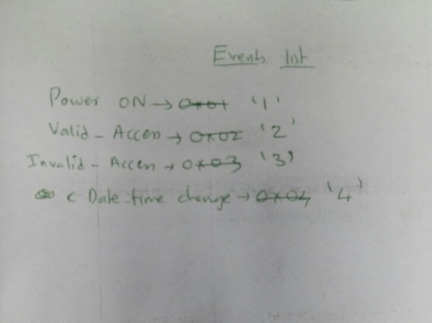 Events list
Power ON → 0x01 '1'
Valid - Access → 0x02 '2'
Invalid - Access → 0x03 '3'
c Date time change → 0x04 '4'